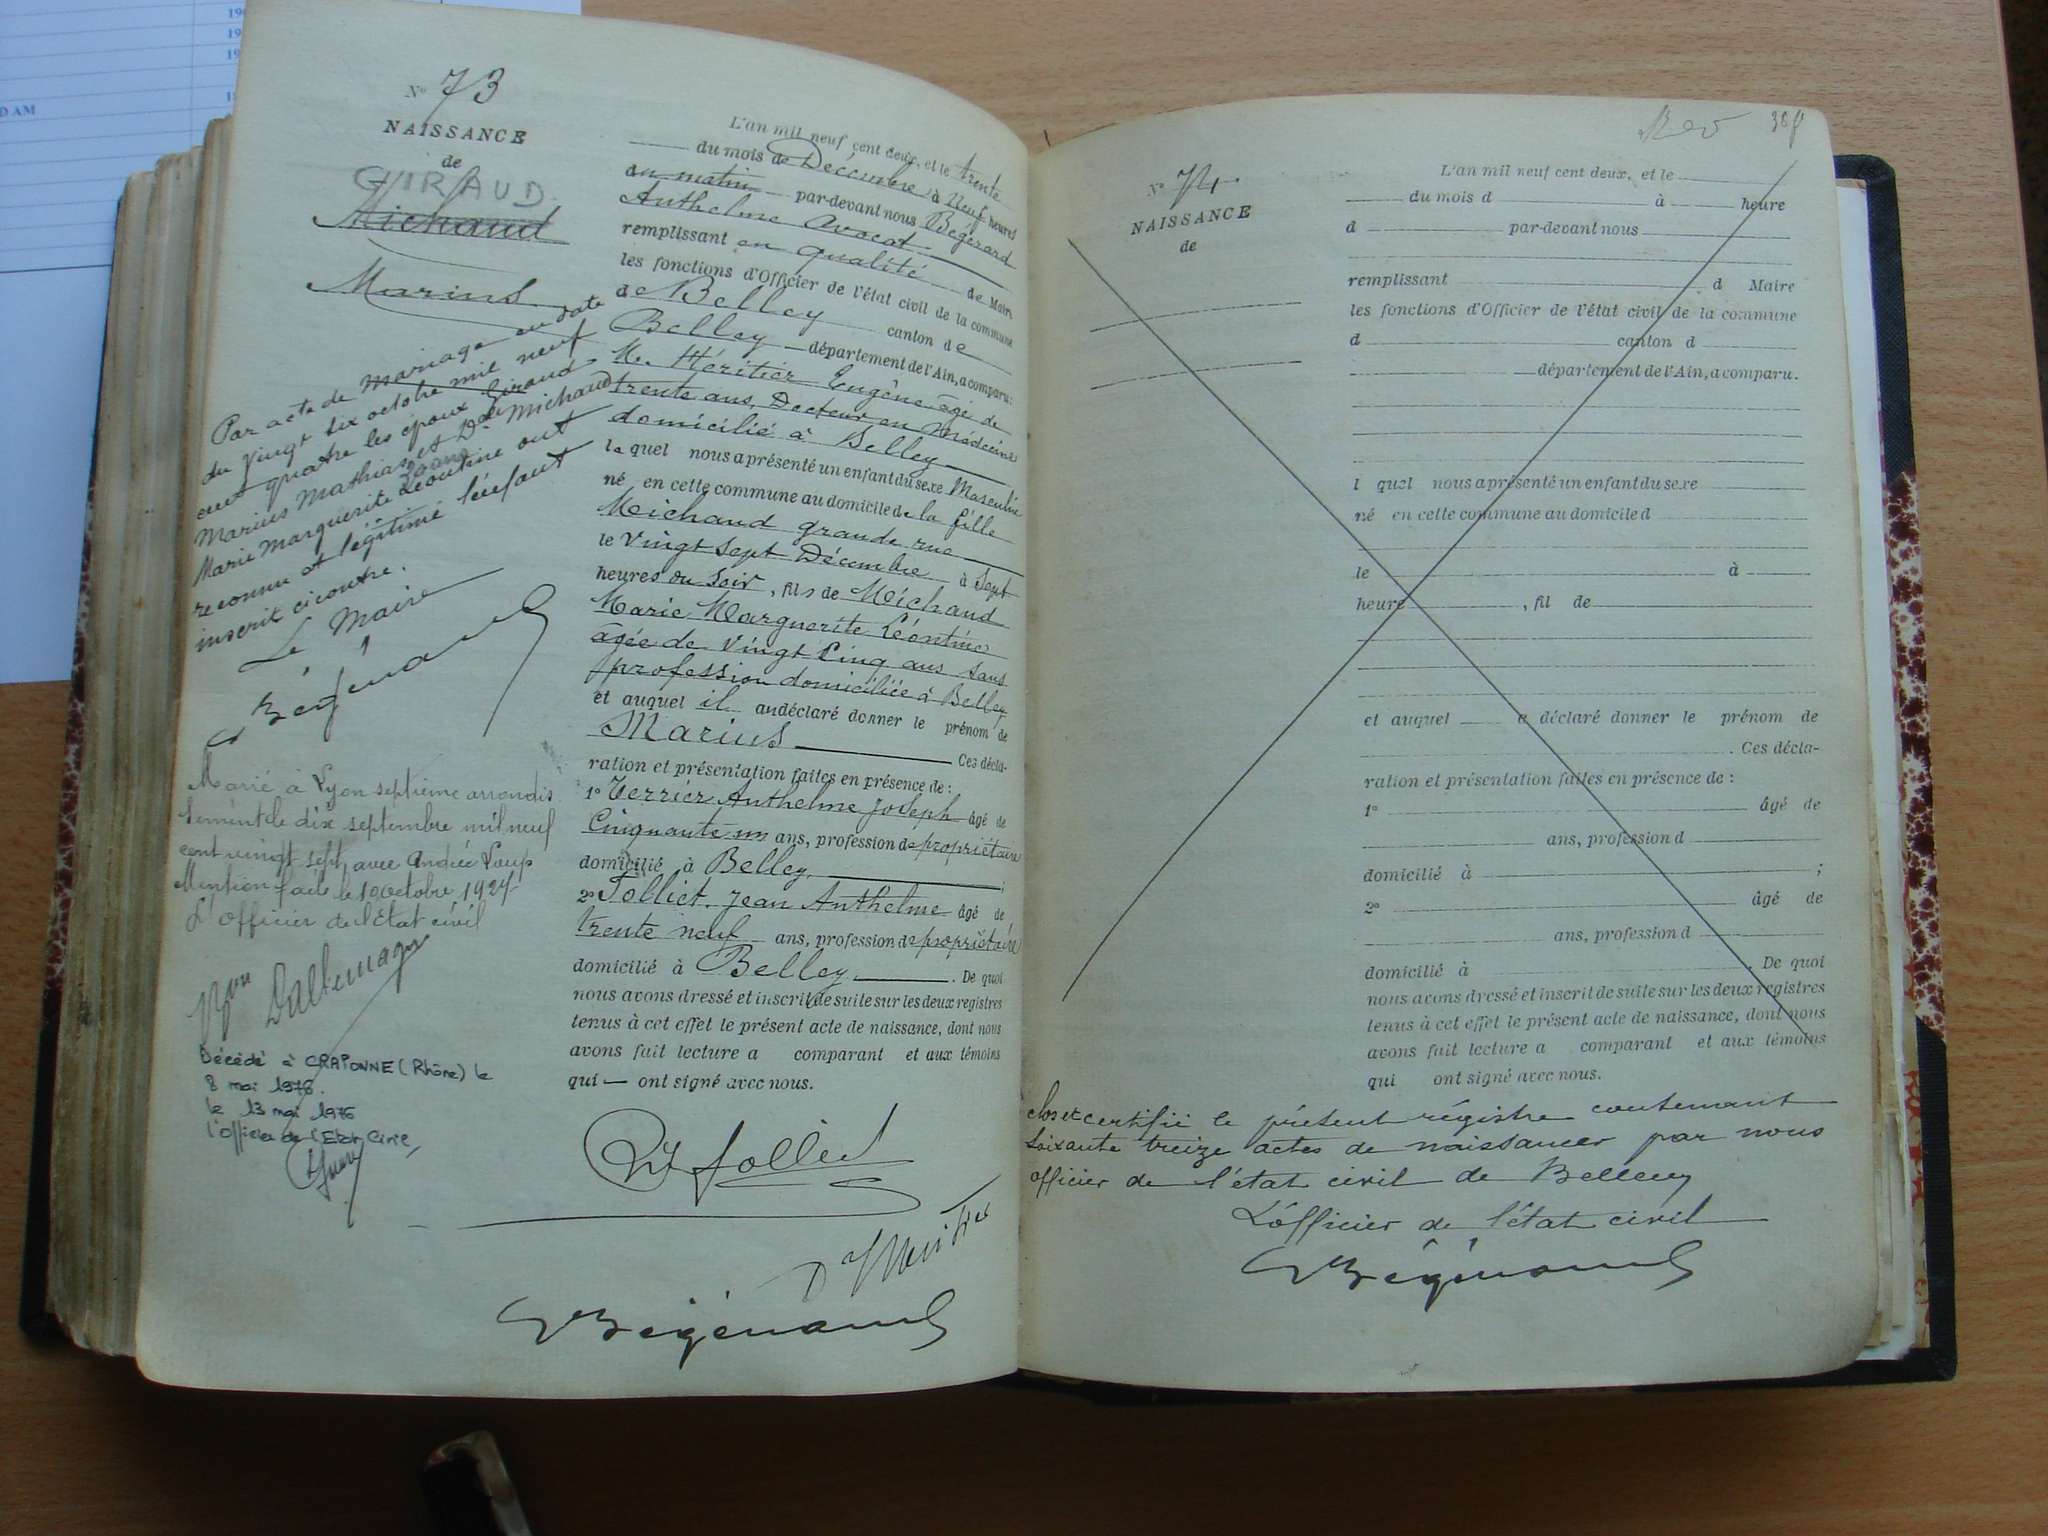 D AM
N° 73
NAISSANCE
de
GIRAUD
Michaud
Marius
Par acte de mariage en date
du vingt six octobre mil neuf
cent quatre les époux Giraud
Marius Mathias et Dlle Michaud
Marie Marguerite Léontine ont
reconnu et légitimé l'enfant
inscrit ci contre.
Le Maire
Bégérard
Marié à Lyon septième arrondis
sement le dix septembre mil neuf
cent vingt sept avec Andrée Loup
Mention faite le 10 octobre 1927
L'officier de l'Etat civil
Dallemagne
Décédé à CRAPONNE (Rhône) le
8 mai 1976.
le 13 mai 1976
l'officier de l'Etat Civil,
L'an mil neuf cent deux, et le trente
du mois de Décembre à Neuf heures
du matin par-devant nous Bégérard
Anthelme Avocat
remplissant en qualité de Maire
les fonctions d'Officier de l'état civil de la commune
de Belley canton de
Belley département de l'Ain, a comparu:
M. Héritier Eugène âgé de
trente ans, Docteur en Médecine
domicilié à Belley
le quel nous a présenté un enfant du sexe Masculin
né en cette commune au domicile de la fille
Michaud grande rue
le vingt sept Décembre à Sept
heures du Soir, fils de Michaud
Marie Marguerite Léontine
âgée de vingt cinq ans sans
profession domiciliée à Belley
et auquel il a déclaré donner le prénom de
Marius Ces décla-
ration et présentation faites en présence de :
1° Terrier Anthelme Joseph âgé de
Cinquante un ans, profession de propriétaire
domicilié à Belley ;
2° Tolliet Jean Anthelme âgé de
trente neuf ans, profession de propriétaire
domicilié à Belley . De quoi
nous avons dressé et inscrit de suite sur les deux registres
tenus à cet effet le présent acte de naissance, dont nous
avons fait lecture a comparant et aux témoins
qui — ont signé avec nous.
Tolliet
Dr Héritier
Bégérard
N° 74
NAISSANCE
de
L'an mil neuf cent deux, et le
du mois d à heure
d par-devant nous
remplissant d Maire
les fonctions d'Officier de l'état civil de la commune
d canton d
département de l'Ain, a comparu.
l quel nous a présenté un enfant du sexe
né en cette commune au domicile d
le à
heure , fil de
et auquel a déclaré donner le prénom de
. Ces décla-
ration et présentation faites en présence de :
1° âgé de
ans, profession d
domicilié à ;
2° âgé de
ans, profession d
domicilié à . De quoi
nous avons dressé et inscrit de suite sur les deux registres
tenus à cet effet le présent acte de naissance, dont nous
avons fait lecture a comparant et aux témoins
qui ont signé avec nous.
clos et certifié le présent régistre contenant
soixante treize actes de naissances par nous
officier de l'état civil de Belley
L'officier de l'état civil
Bégérard